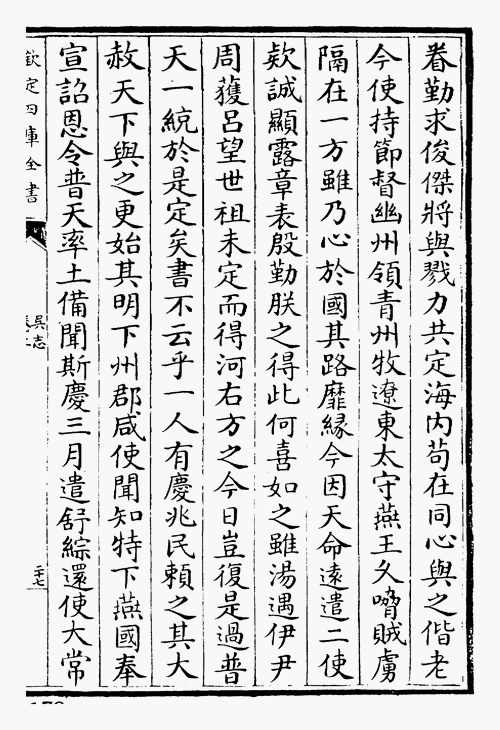 眷勤求俊傑將與戮力共定海内苟在同心與之偕老
今使持節督幽州領青州牧遼東太守燕王久脅賊虜
隔在一方雖乃心於國其路靡緣今因天命逺遣二使
欵誠顯露章表殷勤朕之得此何喜如之雖湯遇伊尹
周獲吕望世祖未定而得河右方之今日豈復是過普
天一統於是定矣書不云乎一人有慶兆民賴之其大
赦天下與之更始其明下州郡咸使聞知特下燕國奉
宣詔恩令普天率土備聞斯慶三月遣舒綜還使大常
欽定四庫全書
吳志
二十七